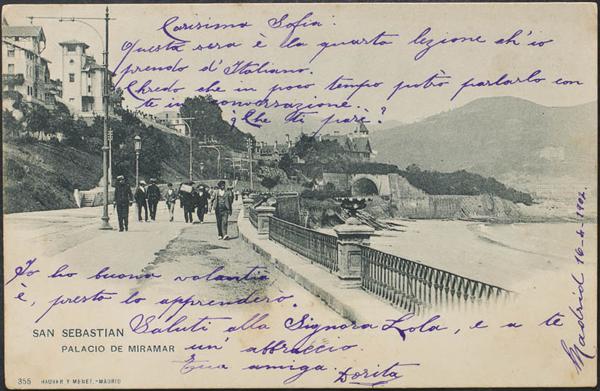 Carissima Sofia:
Questa sera è la quarta lezione ch'io
prendo d'Italiano.
Chredo che in poco tempo potrò parlarlo con
te in convorrazione.
¿Che ti pare?
Io ho buona volantà
è, presto lo apprenderò.
Saluti alla Signora Lola, e a te
un' abbraccio
Tua amiga.
Dorita
Madrid 16-4-1902
SAN SEBASTIAN
PALACIO DE MIRAMAR
355 HAUSER Y MENET.-MADRID